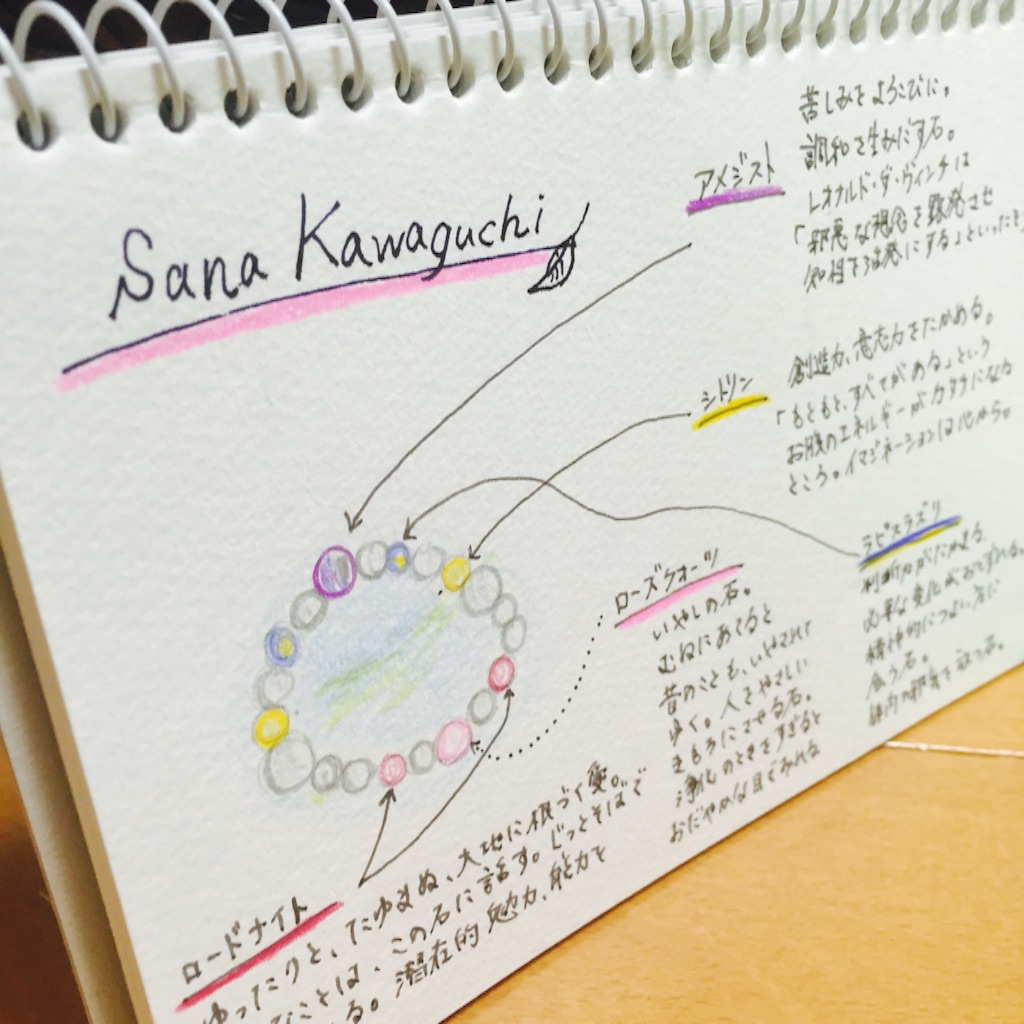 Sana Kawaguchi
アメジスト
苦しみをよろこびに。
調和を生みだす石。
レオナルド・ダ・ヴィンチは
「邪悪な想念を発させ
知性を活発にする」といったそ
シトリン
創造力、意志力をたかめる。
「もともと、すべてがある」という
お腹のエネルギーがカタチになる
ところ。イマジネーションは心から。
ラピスラズリ
判断力がたかまる
必要な変化がおとずれる。
精神的につよい方に
合う石。
体内の
ローズクォーツ
いやしの石。
むねにあてると
昔のことも、いやされて
ゆく。人をやさしい
きもちにさせる石。
浄化のときをすぎると
おだやかな目でみれる
ロードナイト
ゆったりと、たゆまぬ、大地に根づく愛。
ことは、この石に話す。じっとそばで
る。潜在的魅力、能力を